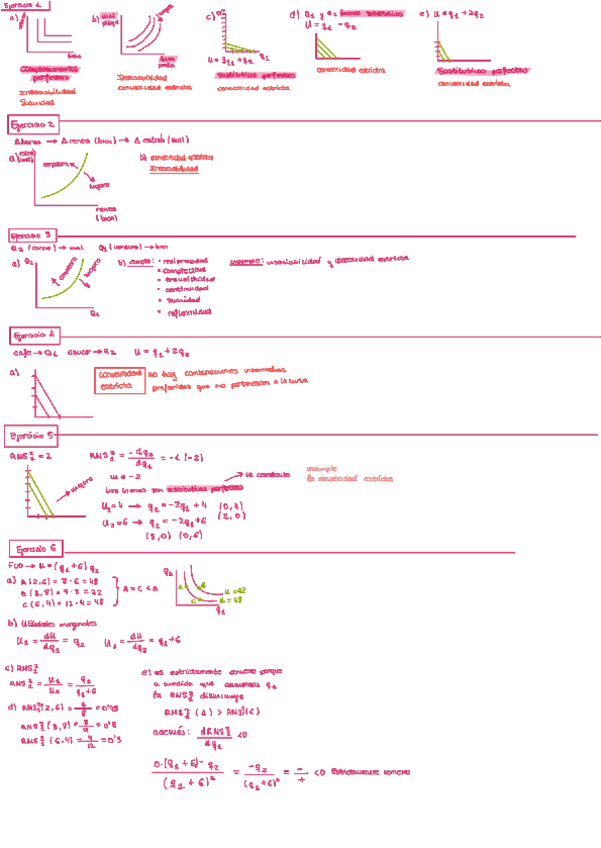 Ejercicio 1
a)
b) mal
c)
d) Q1 y Q2
e) u = q1 + 2q2
U = q1 - q2
Complementarios perfectos
Insaciabilidad
convexidad estricta
q1
Sustitutivos perfectos
convexidad estricta
convexidad estricta
Sustitutivos perfectos
convexidad estricta
Ejercicio 2
Δ renta (bien) → Δ estrés (mal)
a) estrés (mal)
empeora
mejora
renta (bien)
b) convexidad estricta
Insaciabilidad
Ejercicio 3
Q2 (carne) → mal Q1 (verdura) → bien
a) Q2
empeora
mejora
Q1
b) cumple: • reciprocidad
• completitud
• transitividad
• continuidad
• saciedad
• reflexividad
incumple: insaciabilidad y convexidad estricta
Ejercicio 4
café → Q1 azúcar → Q2 U = q1 + 2q2
a)
Convexidad estricta
no hay combinaciones intermedias
preferidas que no pertenezcan a la curva
Ejercicio 5
RMS = 2
mejora
RMS = -dq2/dq1 = -2 (-2)
m = -2
Los bienes son sustitutivos perfectos → m constante
U1 = 4 → q2 = -2q1 + 4 (0,4) (2,0)
U2 = 6 → q2 = -2q1 + 6
(3,0) (0,6)
incumple
la convexidad estricta
Ejercicio 6
FUO → u = (q1 + 6) q2
a) A (2,6) = 8 · 6 = 48
B (3,8) = 9 · 8 = 72
C (6,4) = 12 · 4 = 48
A = C < B
q2
A
B
C
u = 72
u = 48
q1
b) Utilidades marginales
U1 = du/dq1 = q2 U2 = du/dq2 = q1 + 6
c) RMS
RMS = u1/u2 = q2/(q1 + 6)
d) RMS (2,6) = 6/8 = 0'75
RMS (3,8) = 8/9 = 0'8
RMS (6,4) = 4/12 = 0'3
e) es estrictamente convexa porque
a medida que aumenta q1
la RMS disminuye
RMS (A) > RMS (C)
además: dRMS/dq1 < 0
0·(q1 + 6) - q2 / (q1 + 6)² = -q2 / (q1 + 6)² = -/+ < 0 Estrictamente convexa